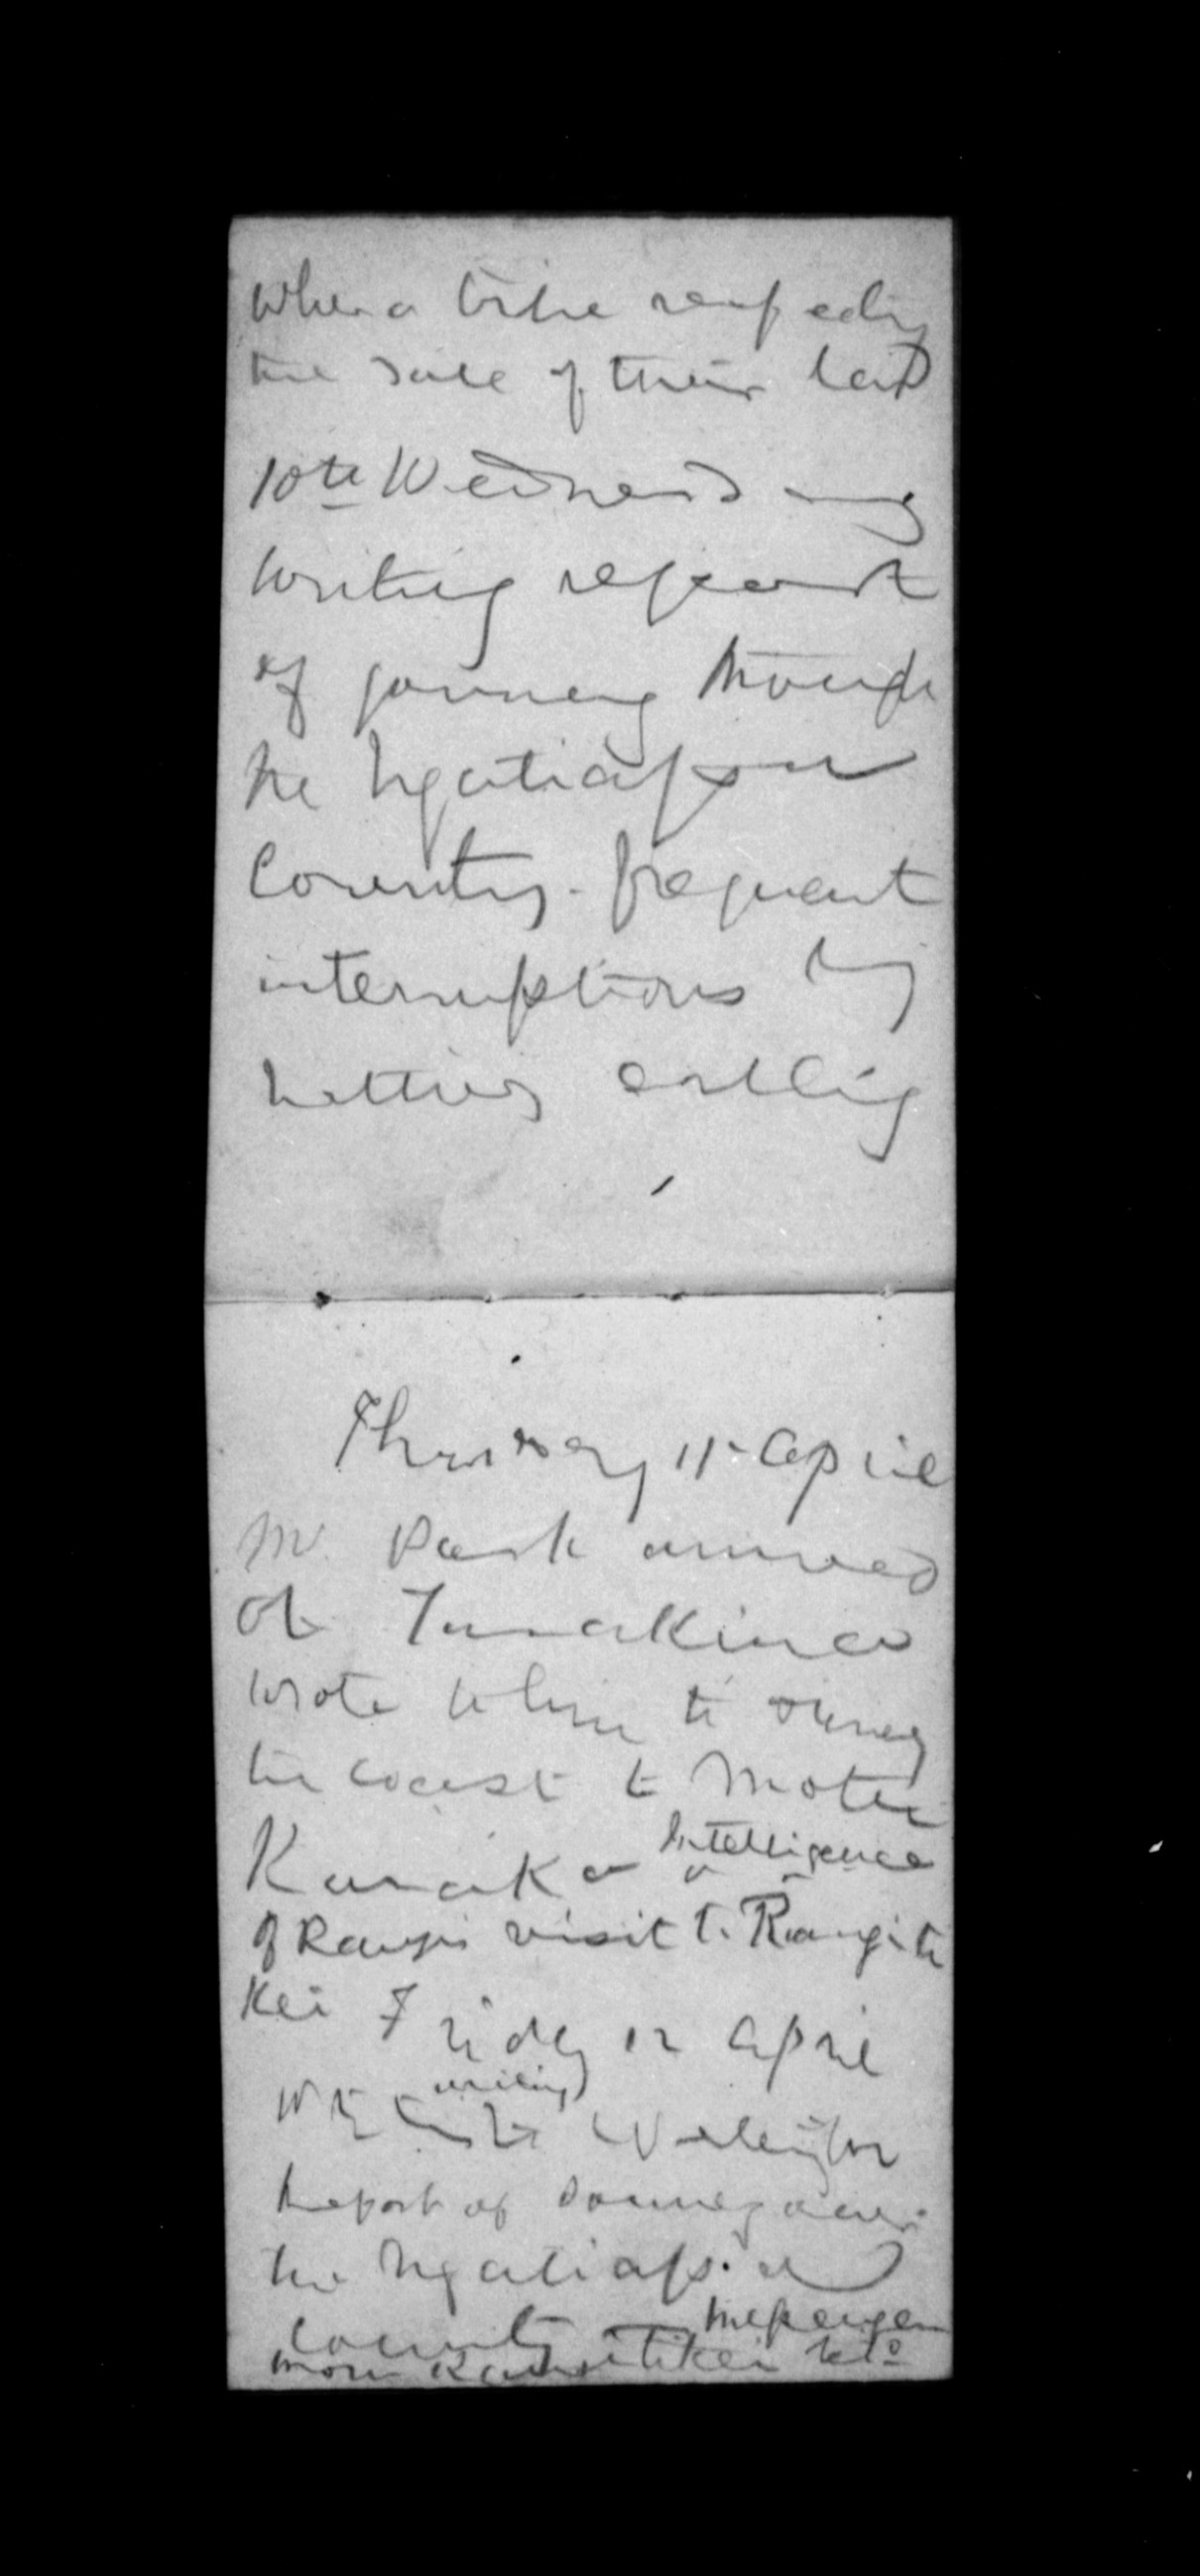 when a tribe respecting
the sale of their land
10th Wednesday
writing report
of journey through
the Ngatiapa
Country. frequent
interruptions by
natives calling
Thursday 11 April
Mr Park arrived
at Turakina
wrote to him to survey
the coast to Motu
Karaka Intelligence
of Rangi's visit to Rangiti
kei Friday 12 April
writing
Wellington
Report of Journey over
the Ngatiapa
country messenger
from Rangitikei